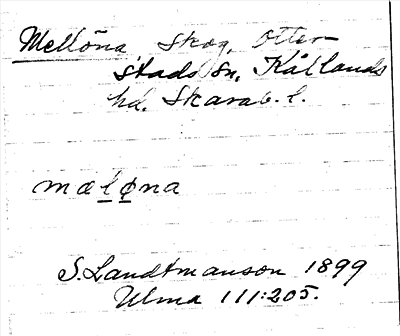 Mellöna skog, Otter-
stads sn, Kållands
hd. Skarab. l.
mæløna
S. Landtmanson 1899
Ulma 111:205.